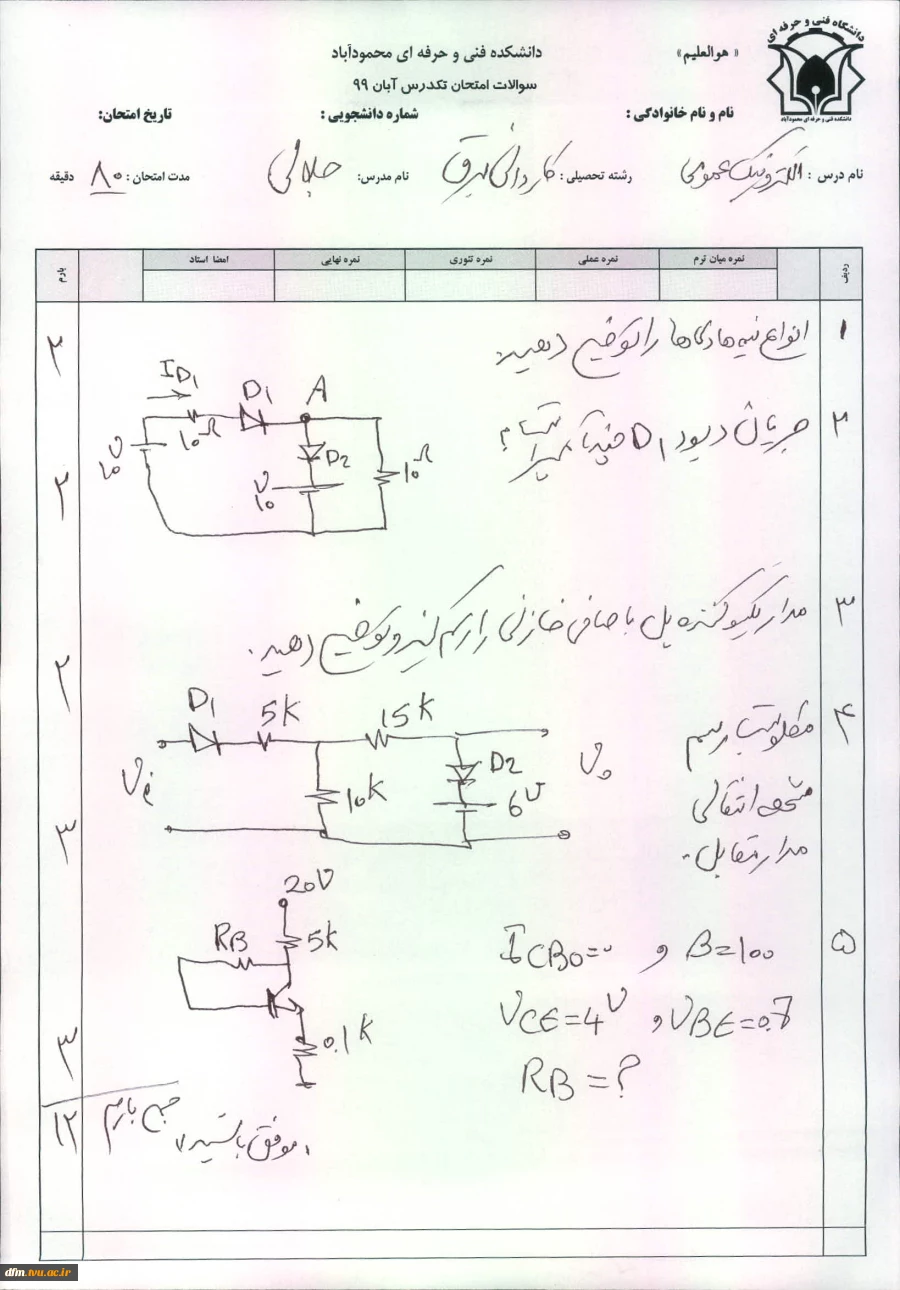 دانشگاه فنی و حرفه ای
دانشکده فنی و حرفه ای محمودآباد
« هوالعلیم»
دانشکده فنی و حرفه ای محمودآباد
سوالات امتحان تکدرس آبان ۹۹
نام و نام خانوادگی :
شماره دانشجویی :
تاریخ امتحان:
نام درس : الکترونیک عمومی
رشته تحصیلی : کاردانی برق
نام مدرس: جلالی
مدت امتحان : ۸۰ دقیقه
ردیف
نمره میان ترم
نمره عملی
نمره تئوری
نمره نهایی
امضا استاد
بارم
۱ انواع نیمه هادی ها را توضیح دهید. ۲
۲ جریان دیود D1 چند آمپر است؟ ۲
ID1
D1
A
10Ω
D2
10V
10V
10Ω
۳ مدار یکسو کننده پل با صافی خازنی را رسم کنید و توضیح دهید. ۲
۴ مطلوبست رسم
مشخصه انتقالی
مدار مقابل. ۳
D1
5K
15K
Vi
10K
D2
6V
Vo
۵ B=100 و ICBO=۰
VBE=0.7 و VCE=4V
RB=? ۳
20V
RB
5K
0.1K
جمع بارم ۱۲
موفق باشید
dfm.tvu.ac.ir